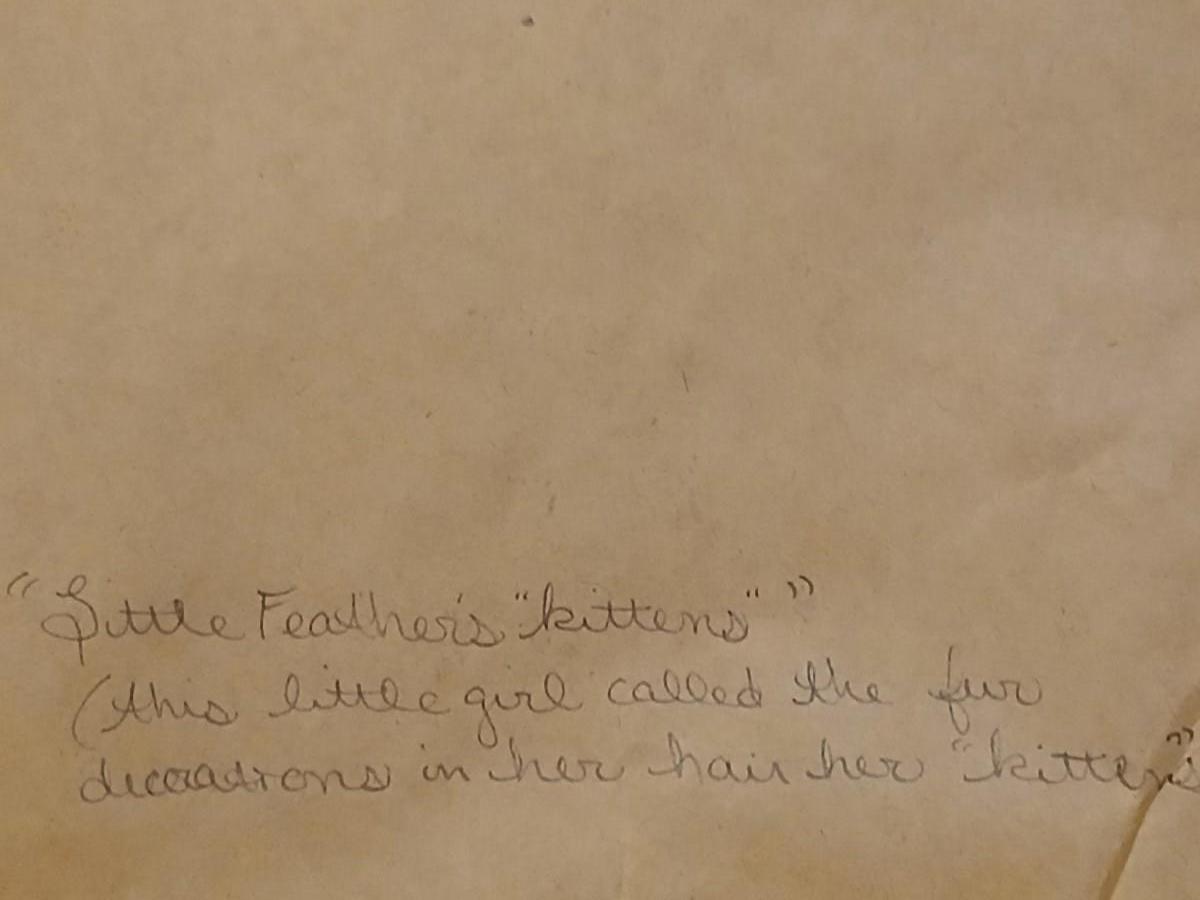 "Little Feather's "kittens" "
(this little girl called the fur
decorations in her hair her "kittens"